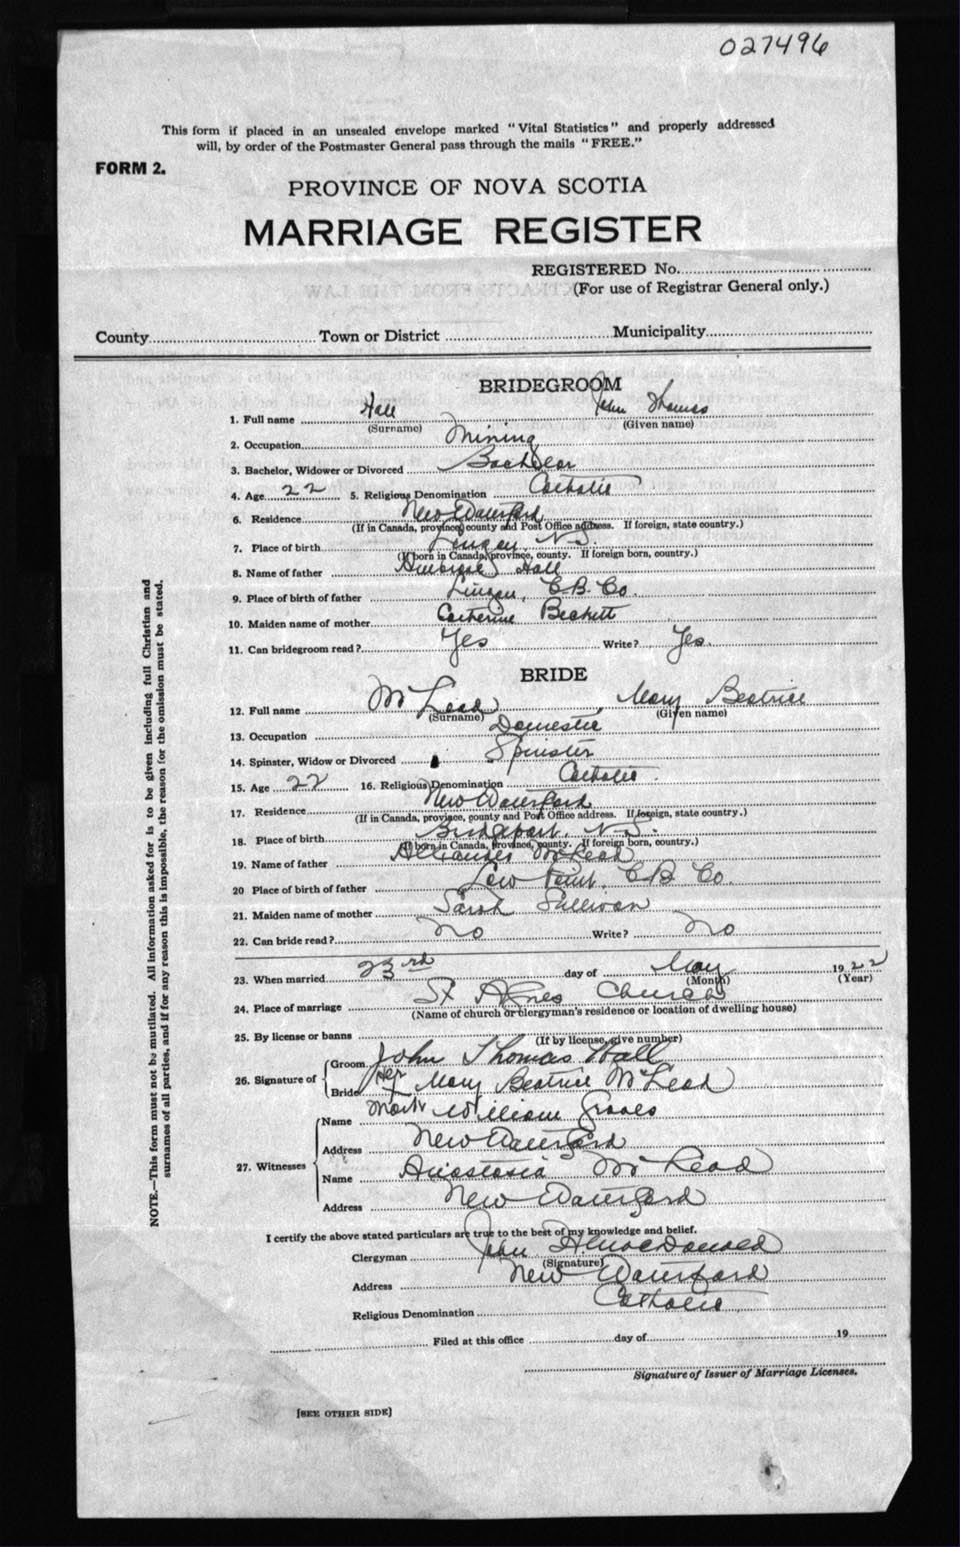 027496
This form if placed in an unsealed envelope marked "Vital Statistics" and properly addressed
will, by order of the Postmaster General pass through the mails "FREE."
FORM 2.
PROVINCE OF NOVA SCOTIA
MARRIAGE REGISTER
REGISTERED No.
(For use of Registrar General only.)
County Town or District Municipality
BRIDEGROOM
1. Full name Hall John Thomas
(Surname) (Given name)
2. Occupation Mining
3. Bachelor, Widower or Divorced Bachelor
4. Age 22 5. Religious Denomination Catholic
6. Residence New Waterford
(If in Canada, province, county and Post Office address. If foreign, state country.)
7. Place of birth Lingan, N.S.
(If born in Canada, province, county. If foreign born, country.)
8. Name of father Ambrose Hall
9. Place of birth of father Lingan, C.B. Co.
10. Maiden name of mother Catherine Beckett
11. Can bridegroom read? Yes Write? Yes.
BRIDE
12. Full name McLeod, Mary Beatrice
(Surname) (Given name)
13. Occupation Domestic
14. Spinster, Widow or Divorced Spinster
15. Age 22 16. Religious Denomination Catholic
17. Residence New Waterford
(If in Canada, province, county and Post Office address. If foreign, state country.)
18. Place of birth Bridgeport, N.S.
(If born in Canada, province, county. If foreign born, country.)
19. Name of father Alexander McLeod
20 Place of birth of father Low Point, C.B. Co.
21. Maiden name of mother Sarah Sullivan
22. Can bride read? No Write? No
23. When married 23rd day of May 1922
(Month) (Year)
24. Place of marriage St Agnes Church
(Name of church or clergyman's residence or location of dwelling house)
25. By license or banns
(If by license, give number)
26. Signature of Groom John Thomas Hall
Bride Her X Mary Beatrice McLeod
Mark
27. Witnesses Name William Graves
Address New Waterford
Name Anastasia McLeod
Address New Waterford
I certify the above stated particulars are true to the best of my knowledge and belief.
Clergyman John H MacDonald
(Signature)
Address New Waterford
Religious Denomination Catholic
Filed at this office day of 19
Signature of Issuer of Marriage Licenses.
[SEE OTHER SIDE]
NOTE.—This form must not be mutilated. All information asked for is to be given including full Christian and
surnames of all parties, and if for any reason this is impossible, the reason for the omission must be stated.